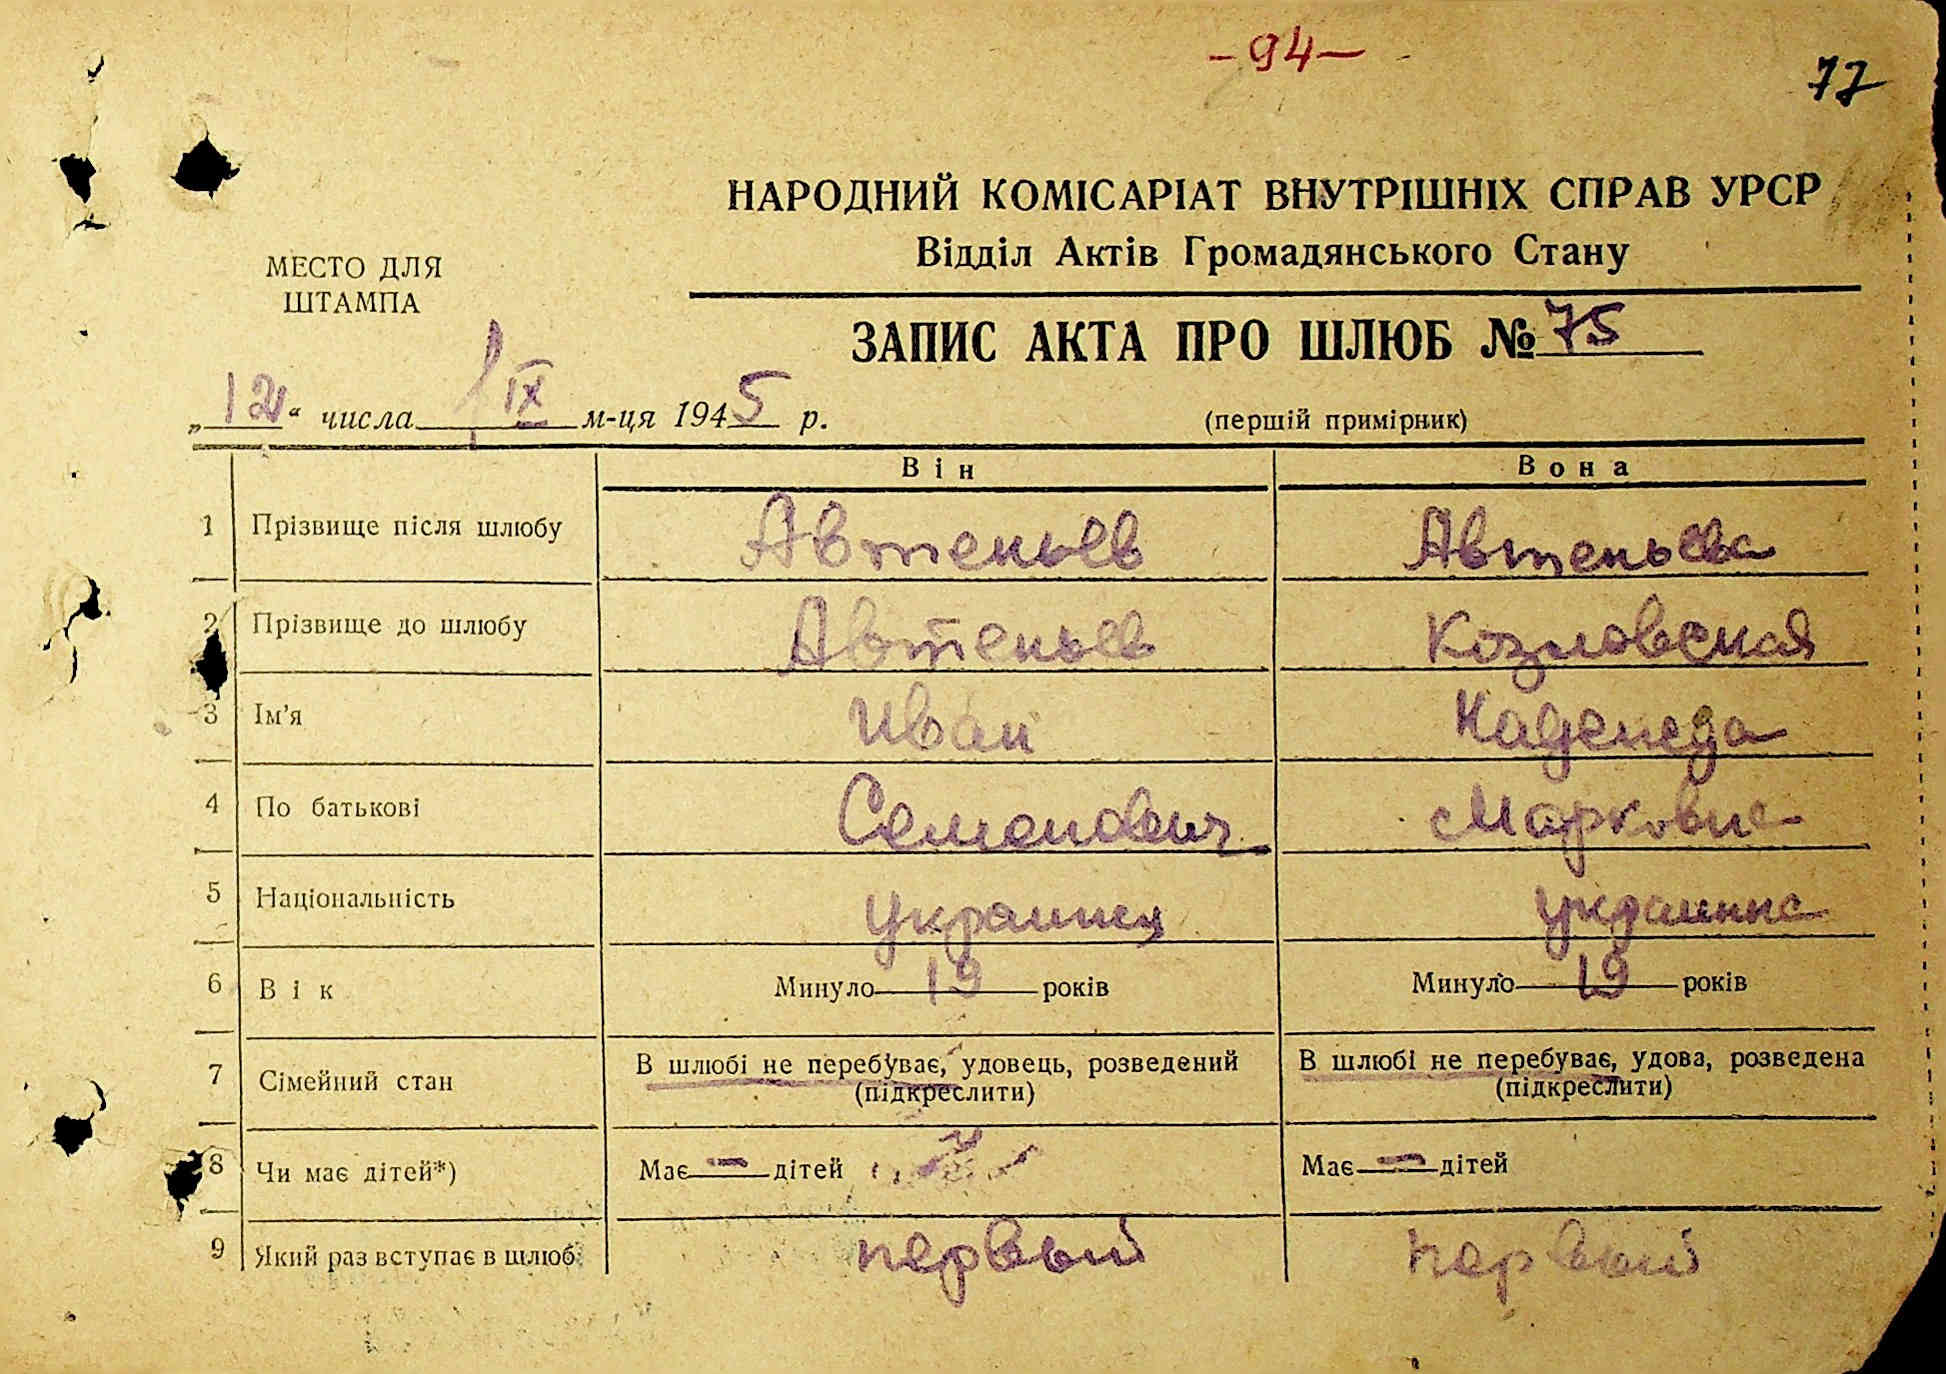 -94-
77
НАРОДНИЙ КОМІСАРІАТ ВНУТРІШНІХ СПРАВ УРСР
Відділ Актів Громадянського Стану
МЕСТО ДЛЯ
ШТАМПА
ЗАПИС АКТА ПРО ШЛЮБ № 75
„12“ числа IX м-ця 1945 р. (першій примірник)
Він Вона
1 Прізвище після шлюбу Автеньев Автеньева
2 Прізвище до шлюбу Автеньев Козловская
3 Ім'я Иван Надежда
4 По батькові Семенович Марковна
5 Національність украинец украинка
6 Вік Минуло 19 років Минуло 19 років
7 Сімейний стан В шлюбі не перебуває, удовець, розведений В шлюбі не перебуває, удова, розведена
(підкреслити) (підкреслити)
8 Чи має дітей*) Має — дітей Має — дітей
9 Який раз вступає в шлюб первый первый